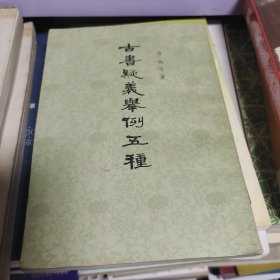 古書疑義舉例五種